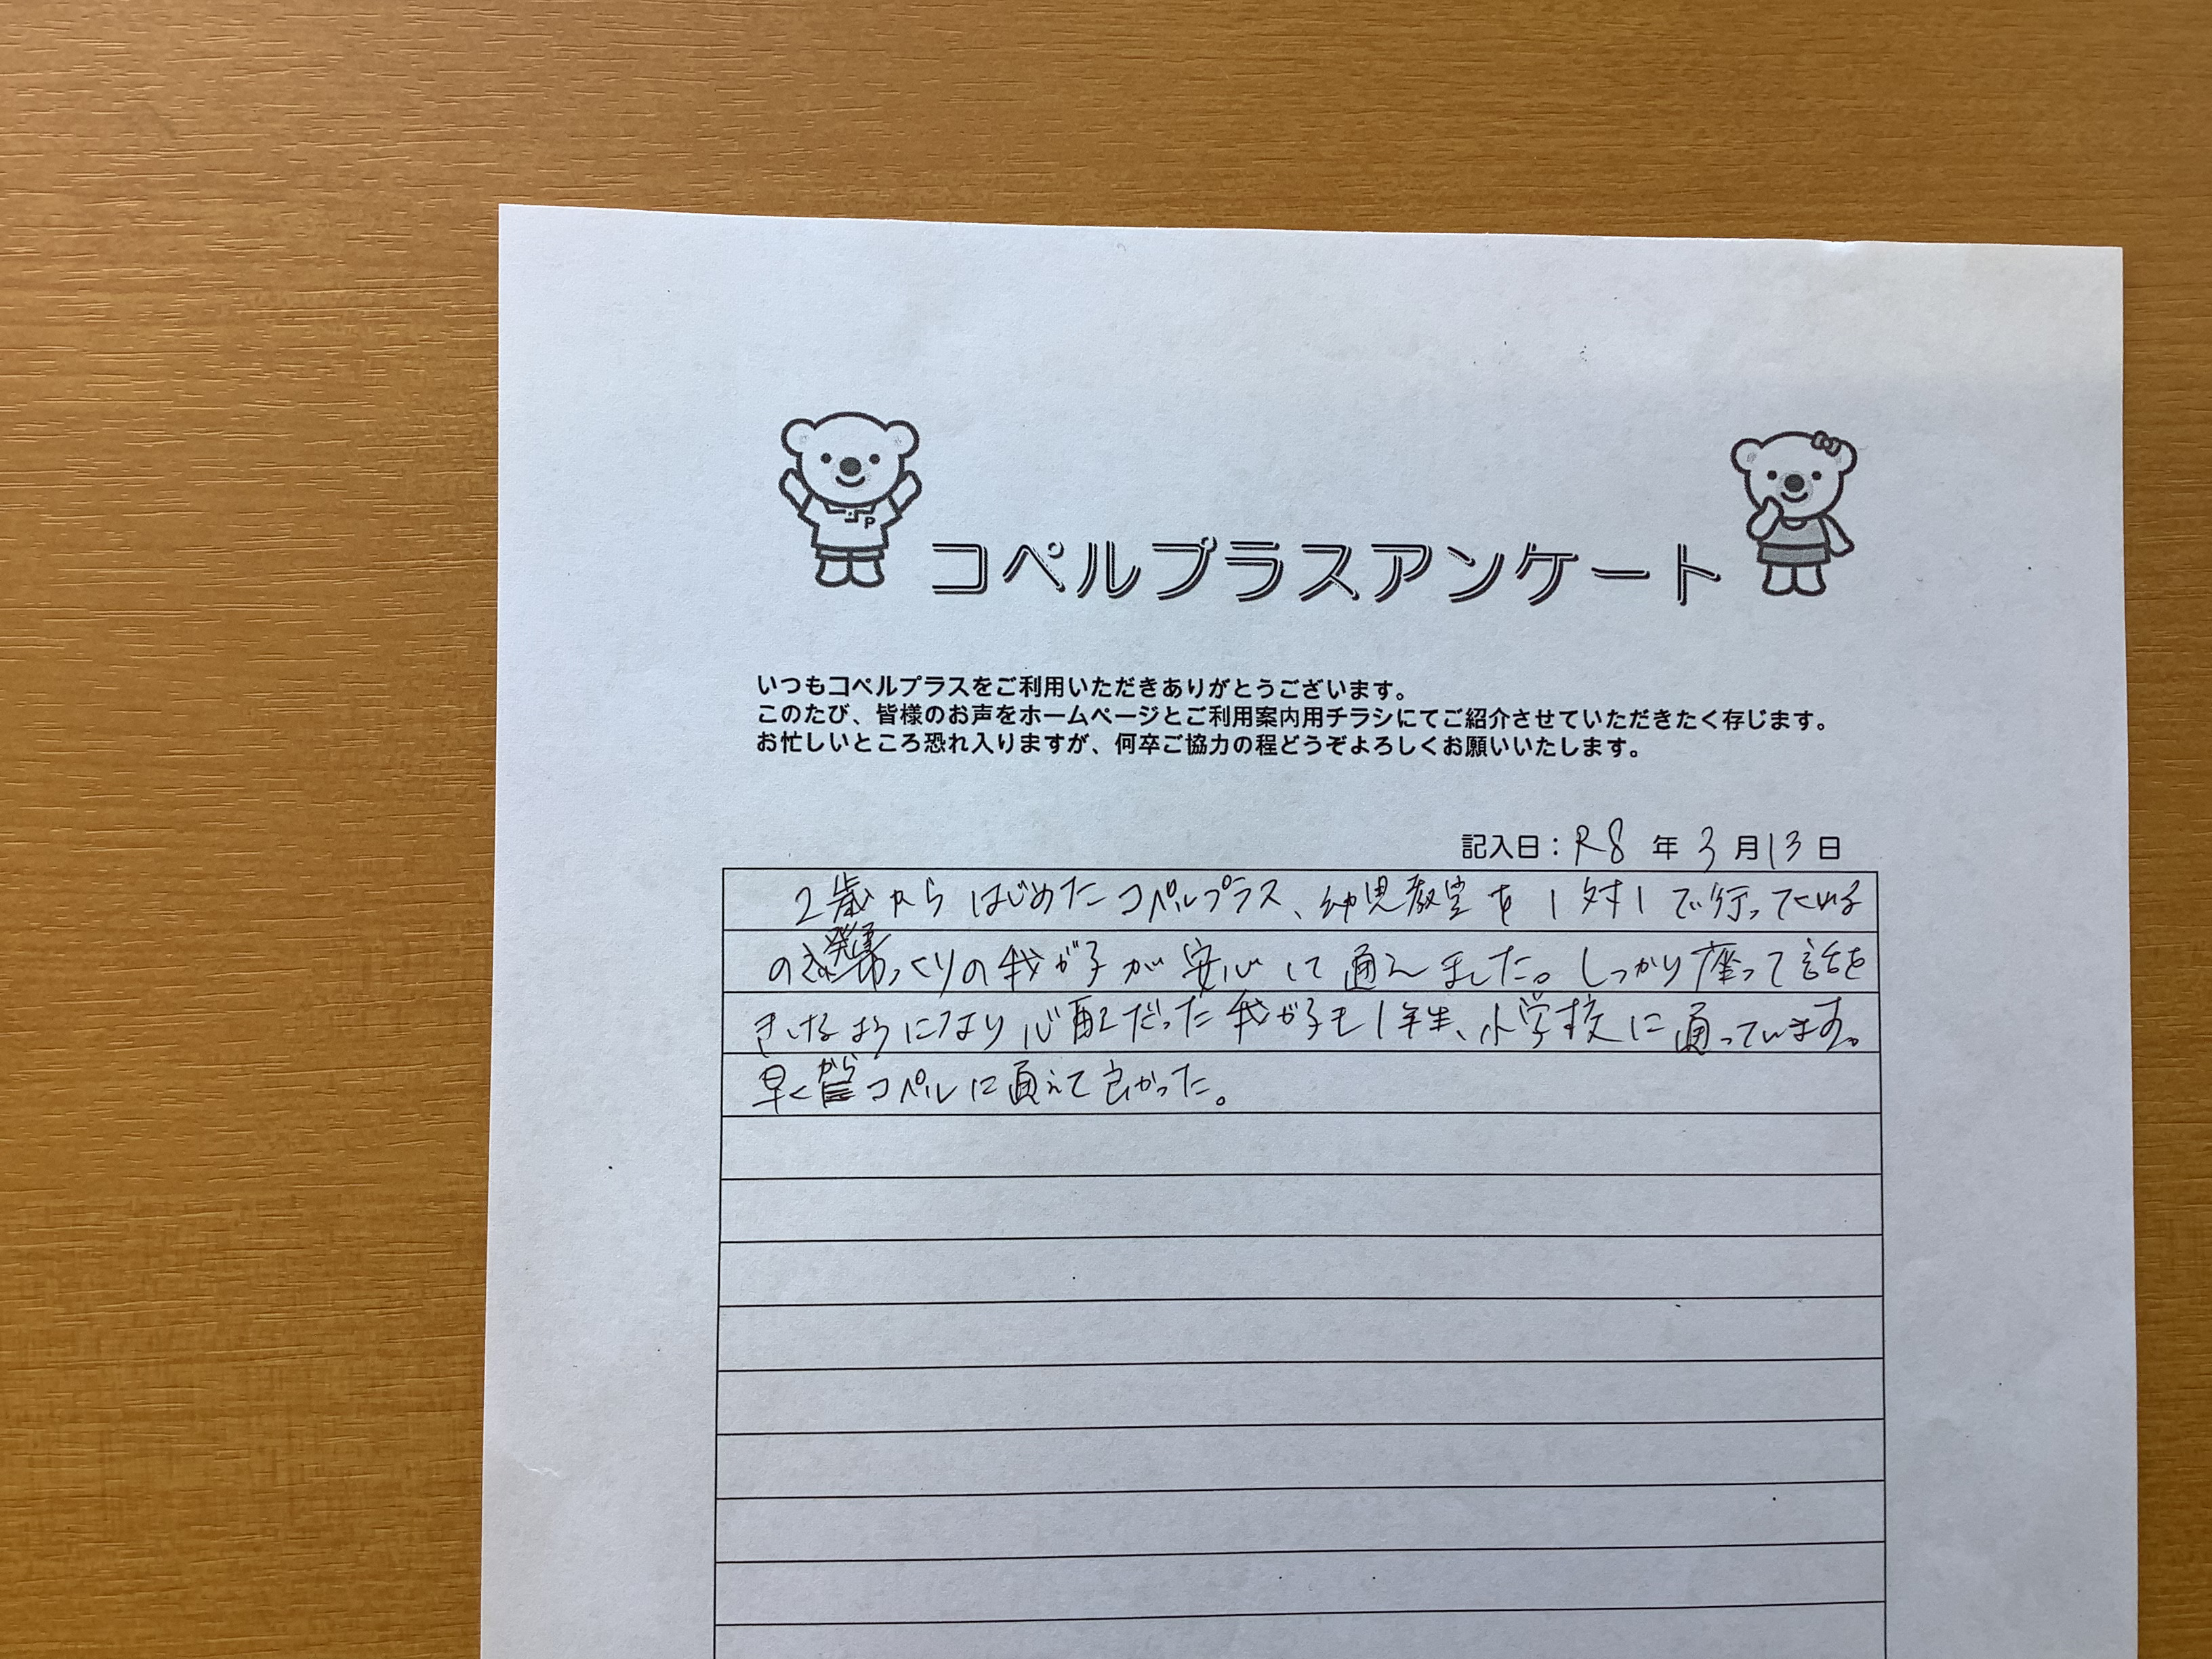 コペルプラスアンケート
いつもコペルプラスをご利用いただきありがとうございます。
このたび、皆様のお声をホームページとご利用案内用チラシにてご紹介させていただきたく存じます。
お忙しいところ恐れ入りますが、何卒ご協力の程どうぞよろしくお願いいたします。
記入日：R8年3月13日
2歳からはじめたコペルプラス、幼児教室を1対1で行っている
の っくりの我が子が安心して通えました。しっかり座って話を
きけるようになり心配だった我が子も1年生、小学校に通っています。
早くからコペルに通えて良かった。
P